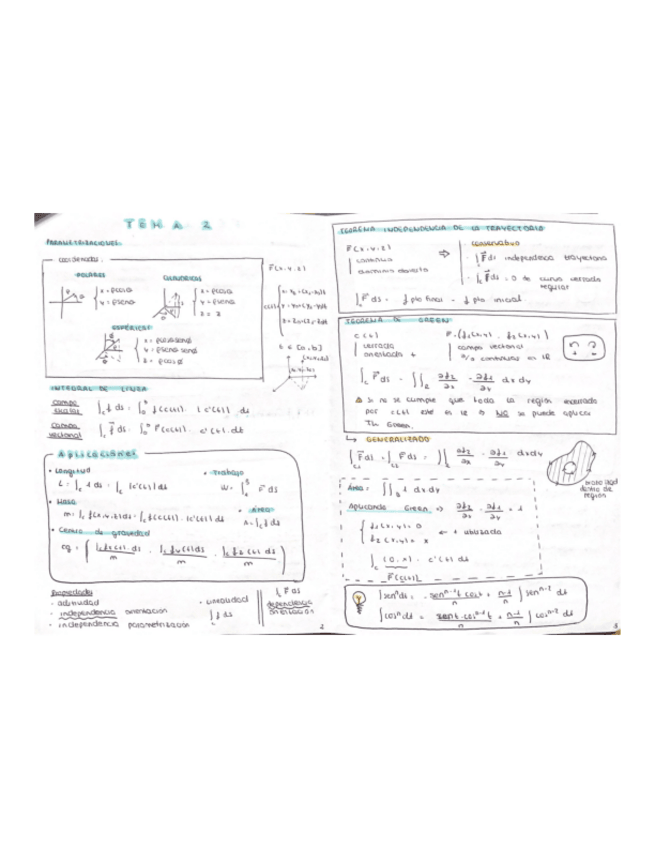 TEMA 2
PARAMETRIZACIONES
coordenadas:
POLARES
x = ρcosθ
y = ρsenθ
CILINDRICAS
x = ρcosθ
y = ρsenθ
z = z
ESFÉRICAS
F(x,y,z)
t ∈ [a,b]
INTEGRAL DE LINEA
campo escalar ∫c f ds = ∫ f(c(t)) · |c'(t)| · dt
campo vectorial ∫c F ds = ∫ F(c(t)) · c'(t) dt
Aplicaciones
• Longitud
L = ∫c 1 ds = ∫c |c'(t)| ds
• Trabajo
W = ∫ F ds
• Masa
m = ∫c f(x,y,z) ds = ∫c f(c(t)) · |c'(t)| ds
• Área
A = ∫c f ds
• Centro de gravedad
cg =
Propiedades
• aditividad
• linealidad
• independencia orientación
∫ f ds
• independencia parametrización
∫c F ds
dependencia orientación
2
TEOREMA INDEPENDENCIA DE LA TRAYECTORIA
F(x,y,z)
continuo
dominio abierto
⇒
conservativo
- ∫ F ds independencia trayectoria
- ∫ F ds = 0 de curva cerrada regular
∫c F ds = f pto final - f pto inicial
TEOREMA DE GREEN
c(t)
cerrada
orientada +
F = (f1(x,y), f2(x,y))
campo vectorial
∫c F ds = ∫∫R ∂f2/∂x - ∂f1/∂y dx dy
⚠ Si no se cumple que toda la región encerrada
por c(t) esté en R ⇒ NO se puede aplicar
Th Green.
↳ GENERALIZADO
∫c1 F ds + ∫c2 F ds = ∫∫R ∂f2/∂x - ∂f1/∂y dx dy
dentro de región
Área = ∫∫R 1 dx dy
Aplicando Green ⇒ ∂f2/∂x - ∂f1/∂y = 1
f1(x,y) = 0
f2(x,y) = x
← + utilizada
∫c (0,x) · c'(t) dt
F(c(t))
∫senⁿ dt = -senⁿ⁻¹t cost/n + n-1/n ∫ senⁿ⁻² dt
∫cosⁿ dt = sent·cosⁿ⁻¹t/n + n-1/n ∫ cosⁿ⁻² dt
3